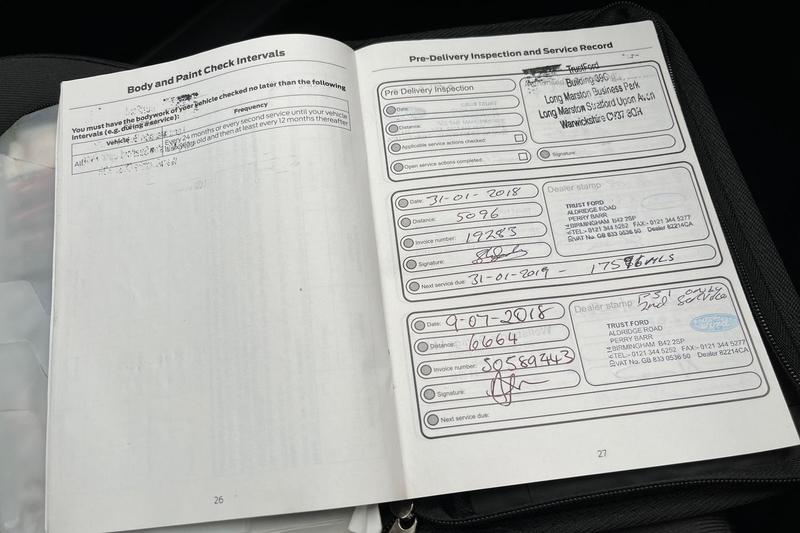 Body and Paint Check Intervals
You must have the bodywork of your vehicle checked no later than the following
intervals (e.g. during service):
Vehicle
Frequency
All
Every 24 months or every second service until your vehicle
is years old and then at least every 12 months thereafter
26
Pre-Delivery Inspection and Service Record
Pre Delivery Inspection
Date:
Distance:
Applicable service actions checked:
Open service actions completed:
TrustFord
Building 39C
Long Marston Business Perk
Long Marston Stratford Upon Avon
Warwickshire CV37 8QH
Signature:
Date: 31-01-2018
Distance: 5096
Invoice number: 19283
Signature:
Next service due: 31-01-2019 - 17596 MLS
Dealer stamp
TRUST FORD
ALDRIDGE ROAD
PERRY BARR
BIRMINGHAM B42 2SP
TEL:- 0121 344 5252 FAX:- 0121 344 5277
VAT No. GB 833 0536 50 Dealer 82214CA
Date: 9-07-2018
Distance: 6664
Invoice number: S0589443
Signature:
Next service due:
Dealer stamp
2nd Service
TRUST FORD
ALDRIDGE ROAD
PERRY BARR
BIRMINGHAM B42 2SP
TEL:- 0121 344 5252 FAX:- 0121 344 5277
VAT No. GB 833 0536 50 Dealer 82214CA
27